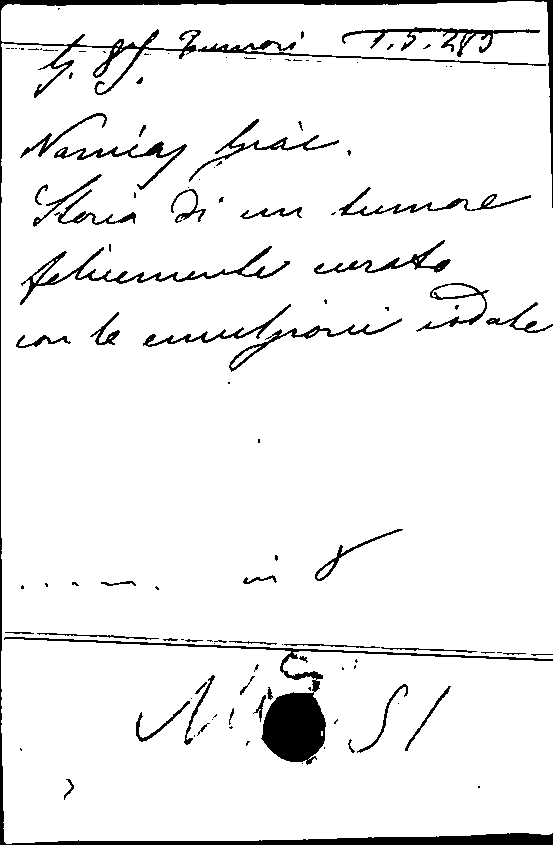 G. 8. Tumori 1.5.285
Namias Giac.
Storia di un tumore
felicemente curato
con le emulsioni iodate
in 8
Mis 51